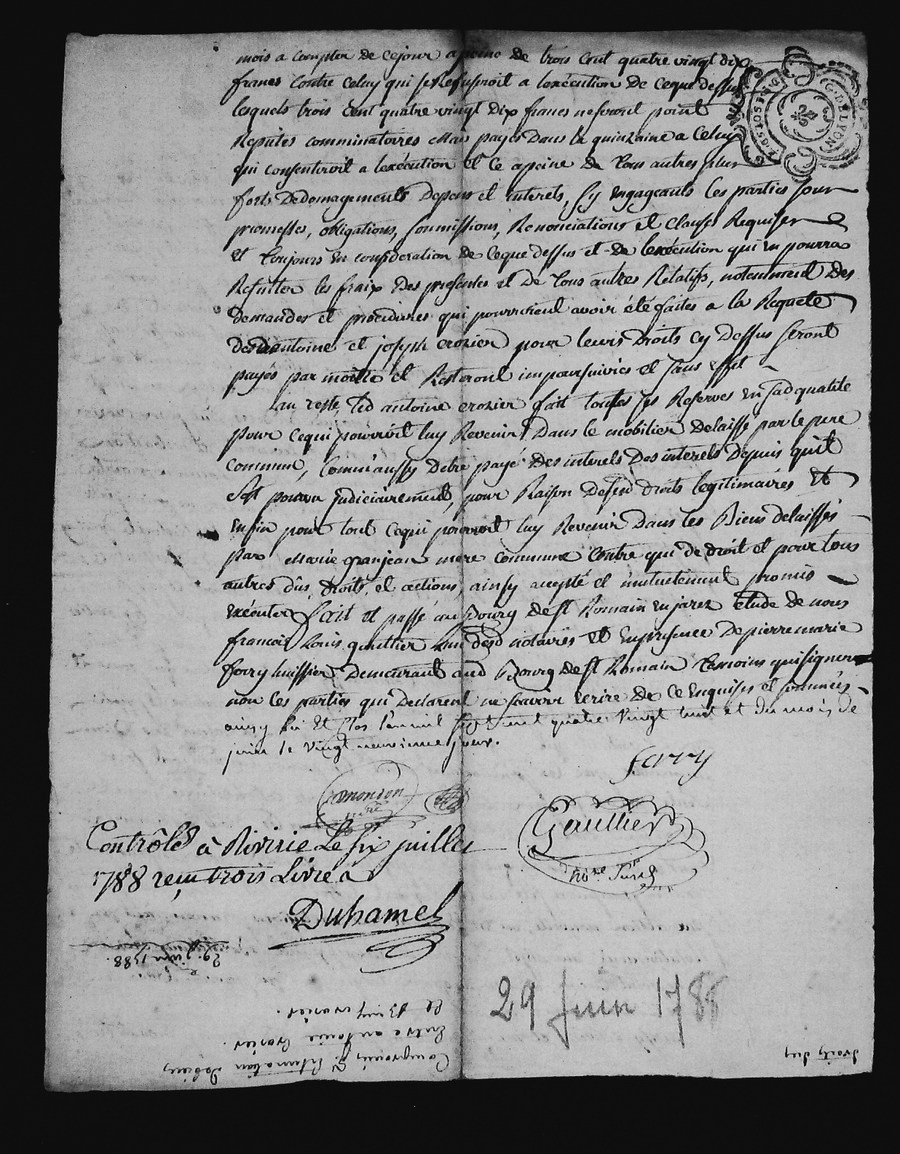 mois a compter de cejour apeine de trois cent quatre vingt dix
francs contre celuy qui se Refuseroit a lexécution de ceque dessus
lesquels trois cent quatre vingt dix francs neseront point
Reputés comminatoires mais payés Dans la quinzaine a celuy
qui consentiroit a lexécution et ce apeine de tous autres plus
forts Dedomagements Depens et interets, sy engageants les parties sous
promesses, obligations, soumissions, Renonciations et clauses Requises
et toujours en consideration de ceque dessus et de lexécution qui en pourra
Resulter les fraix des presentes et de tous autres Relatifs, notamment des
demandes et procedures qui pourroient avoir été faites a la Requete
desd antoine et joseph crozier pour leurs Droits cy Dessus seront
payés par moitié et Resteront impoursuivies et sans effet
au reste led antoine crozier fait toutes ses Reserves en sad qualité
pour cequi pourroit luy Revenir Dans le mobilier delaissé par le pere
commun, comme aussy detre payé des interets des interets Depuis quil
sest pourvu judiciairement, pour Raison desesd droits legitimaires et
enfin pour tout cequi pourroit luy Revenir Dans les Biens delaissés
par marie granjean mere commune contre qui de droit et pour tous
autres dus, droits, et actions, ainsy accepté et mutuelement promis
executer fait et passé au Bourg de st Romain enjarez étude de nous
francois Louis gaultier lun desd notaires et en presence De pierre marie
forry huissier Demeurant aud Bourg de st Romain temoins quisignera
non les parties qui Declarent ne scavoir ecrire de ce Enquises et sommées
ainsy lu et clos lan mil sept cent quatre vingt huit et du mois de
juin le vingt neuvieme jour.
forry
Gaultier
no.re
Contrôlé à Riverie Le six juillet
1788 reçu trois Livre
Duhamel
29. juin 1788.
29 Juin 1788
Entre antoine Crozier.
G. DE LYON